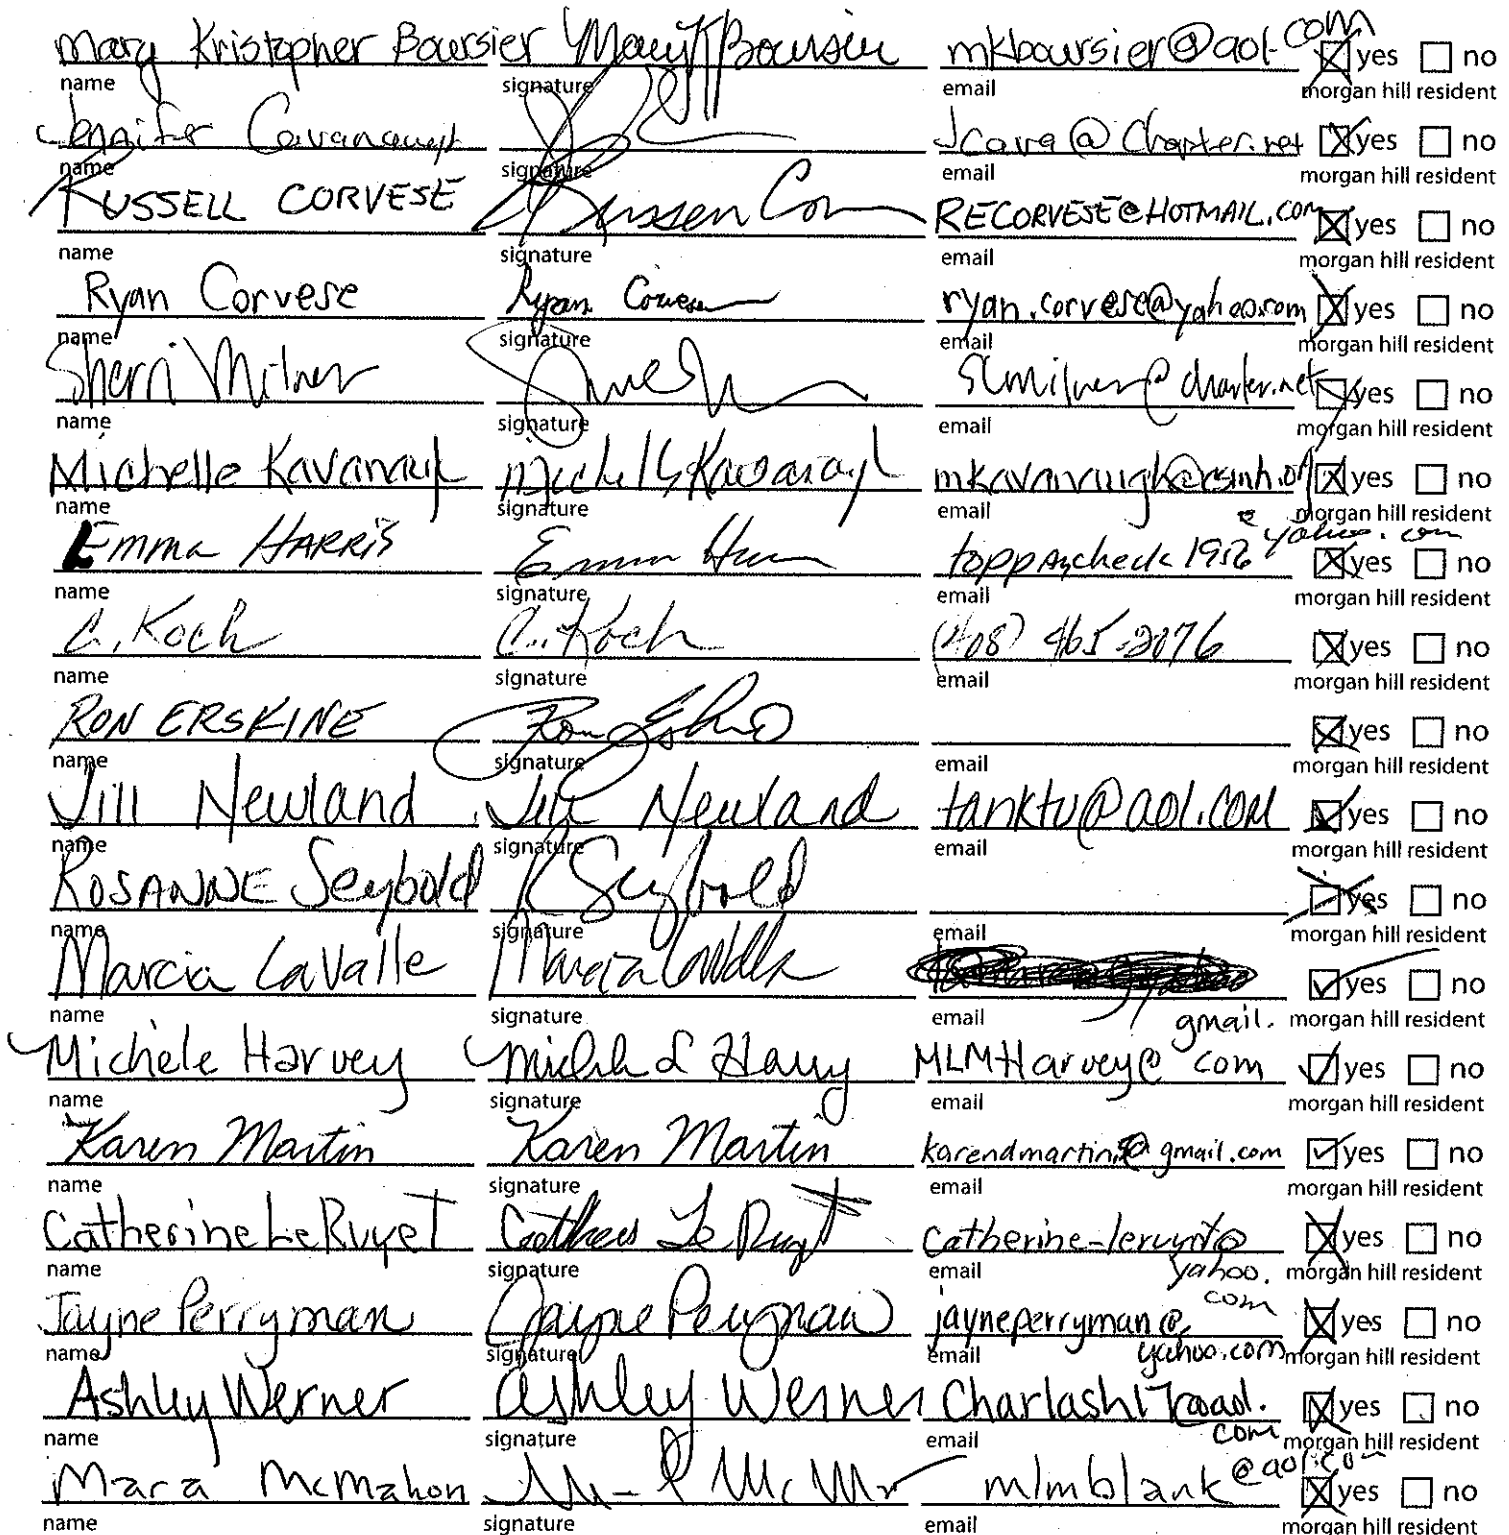 Mary Kristopher Boursier Mary K Boursier mkboursier@aol.com ☒ yes ☐ no
name signature email morgan hill resident
Jennifer Cavanaugh Jcava@Charter.net ☒ yes ☐ no
name signature email morgan hill resident
RUSSELL CORVESE Russell Cor RECORVESE@HOTMAIL.com ☒ yes ☐ no
name signature email morgan hill resident
Ryan Corvese Ryan Corvese ryan.corvese@yahoo.com ☒ yes ☐ no
name signature email morgan hill resident
Sherri Milner slmilner@charter.net ☒ yes ☐ no
name signature email morgan hill resident
Michelle Kavanaugh Michelle Kavanaugh ☒ yes ☐ no
name signature email morgan hill resident
Emma HARRIS Emma Harris toppaycheck1952@yahoo.com ☒ yes ☐ no
name signature email morgan hill resident
C. Koch C. Koch (408) 465-2076 ☒ yes ☐ no
name signature email morgan hill resident
RON ERSKINE Ron Erskine ☒ yes ☐ no
name signature email morgan hill resident
Jill Newland Jill Newland tanktv@aol.com ☒ yes ☐ no
name signature email morgan hill resident
ROSANNE Seybold R Seybold ☒ yes ☐ no
name signature email morgan hill resident
Marcia LaValle Marcia LaValle ☒ yes ☐ no
name signature email morgan hill resident
Michele Harvey Michele L Harvey MLMHarvey@gmail.com ☒ yes ☐ no
name signature email morgan hill resident
Karen Martin Karen Martin ☒ yes ☐ no
name signature email morgan hill resident
Catherine LeRuyet Catherine Le Ruyet ☒ yes ☐ no
name signature email yahoo.com morgan hill resident
Jayne Perryman Jayne Perryman jayneperryman@yahoo.com ☒ yes ☐ no
name signature email morgan hill resident
Ashley Werner Ashley Werner Charlash17@aol.com ☒ yes ☐ no
name signature email morgan hill resident
Mara McMahon mlmblank@aol.com ☒ yes ☐ no
name signature email morgan hill resident